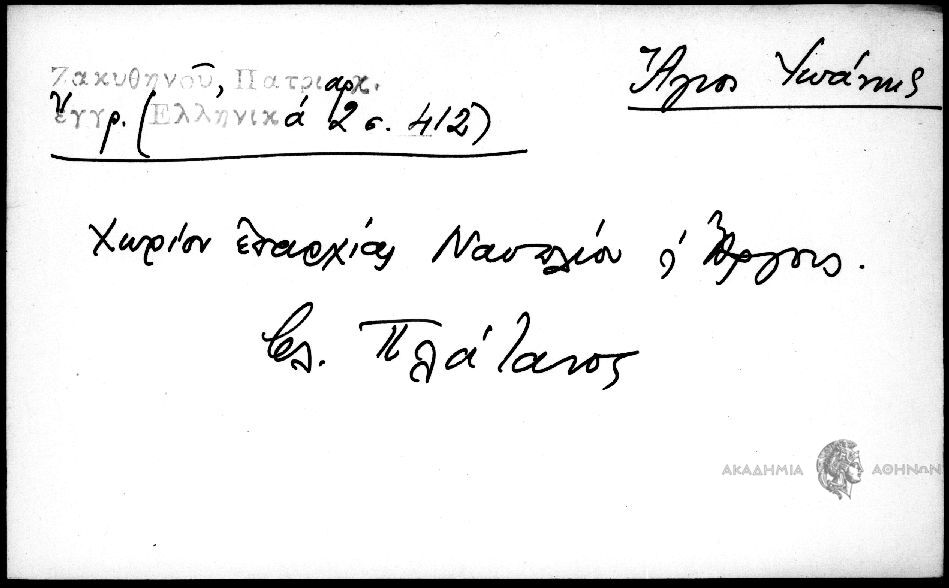 Ζακυθηνοῦ, Πατριαρχ.
ἔγγρ. (Ἑλληνικά 2 σ. 412)
Ἅγιος Ἰωάννης
Χωρίον ἐπαρχίας Ναυπλίου ἢ Ἄργους.
βλ. Πλάτανος
ΑΚΑΔΗΜΙΑ ΑΘΗΝΩΝ